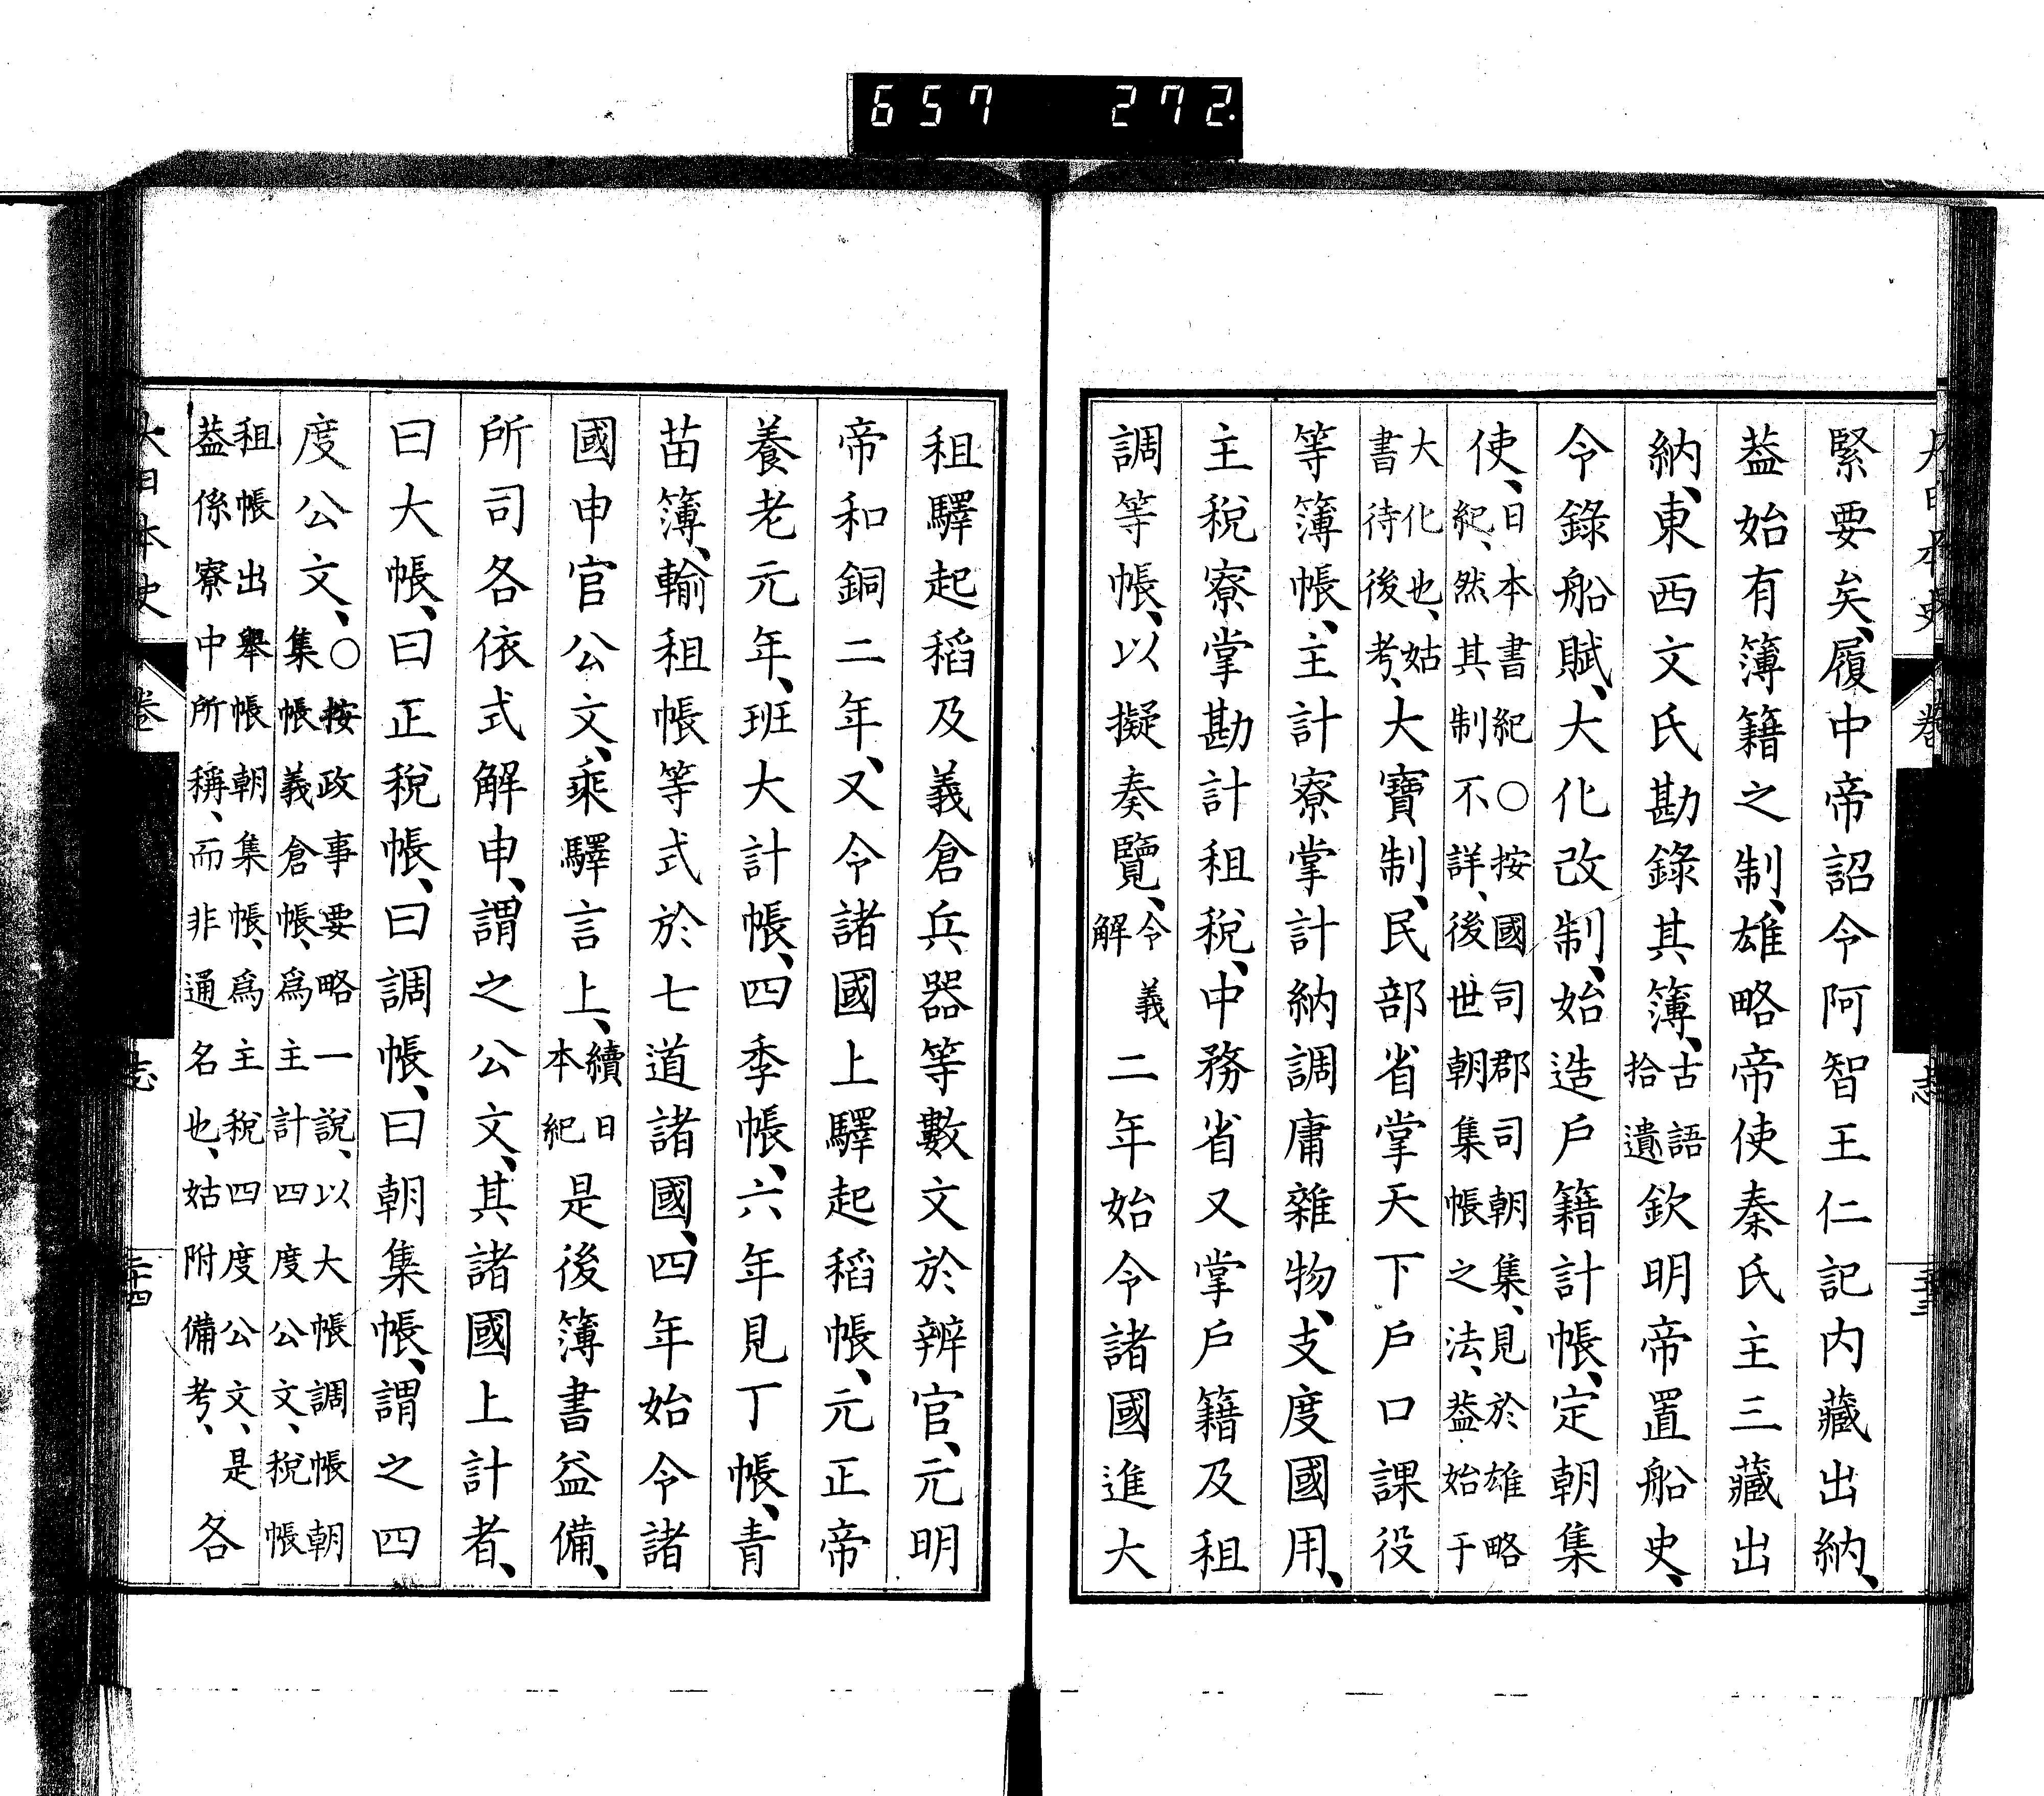 657 272.
大日本史 卷 志
緊要矣、履中帝詔令阿智王仁記内藏出納、
葢始有簿籍之制、雄略帝使秦氏主三藏出
納、東西文氏勘錄其簿、古語拾遺欽明帝置船史、
令錄船賦、大化改制、始造戶籍計帳、定朝集
使、日本書紀○按國司郡司朝集、見於雄略紀、然其制不詳、後世朝集帳之法、葢始于
大化也、姑書待後考、大寶制、民部省掌天下戶口課役
等簿帳、主計寮掌計納調庸雜物、支度國用、
主稅寮掌勘計租稅、中務省又掌戶籍及租
調等帳、以擬奏覽、令義解二年始令諸國進大
租驛起稻及義倉兵器等數文於辨官、元明
帝和銅二年、又令諸國上驛起稻帳、元正帝
養老元年、班大計帳、四季帳、六年見丁帳、青
苗簿、輸租帳等式於七道諸國、四年始令諸
國申官公文、乘驛言上、續日本紀是後簿書益備、
所司各依式解申、謂之公文、其諸國上計者、
曰大帳、曰正稅帳、曰調帳、曰朝集帳、謂之四
度公文、○按政事要略一說、以大帳調帳朝集帳義倉帳、爲主計四度公文、稅帳
租帳出舉帳朝集帳、爲主稅四度公文、是葢係寮中所稱、而非通名也、姑附備考、各
大日本史 卷 志 三十四